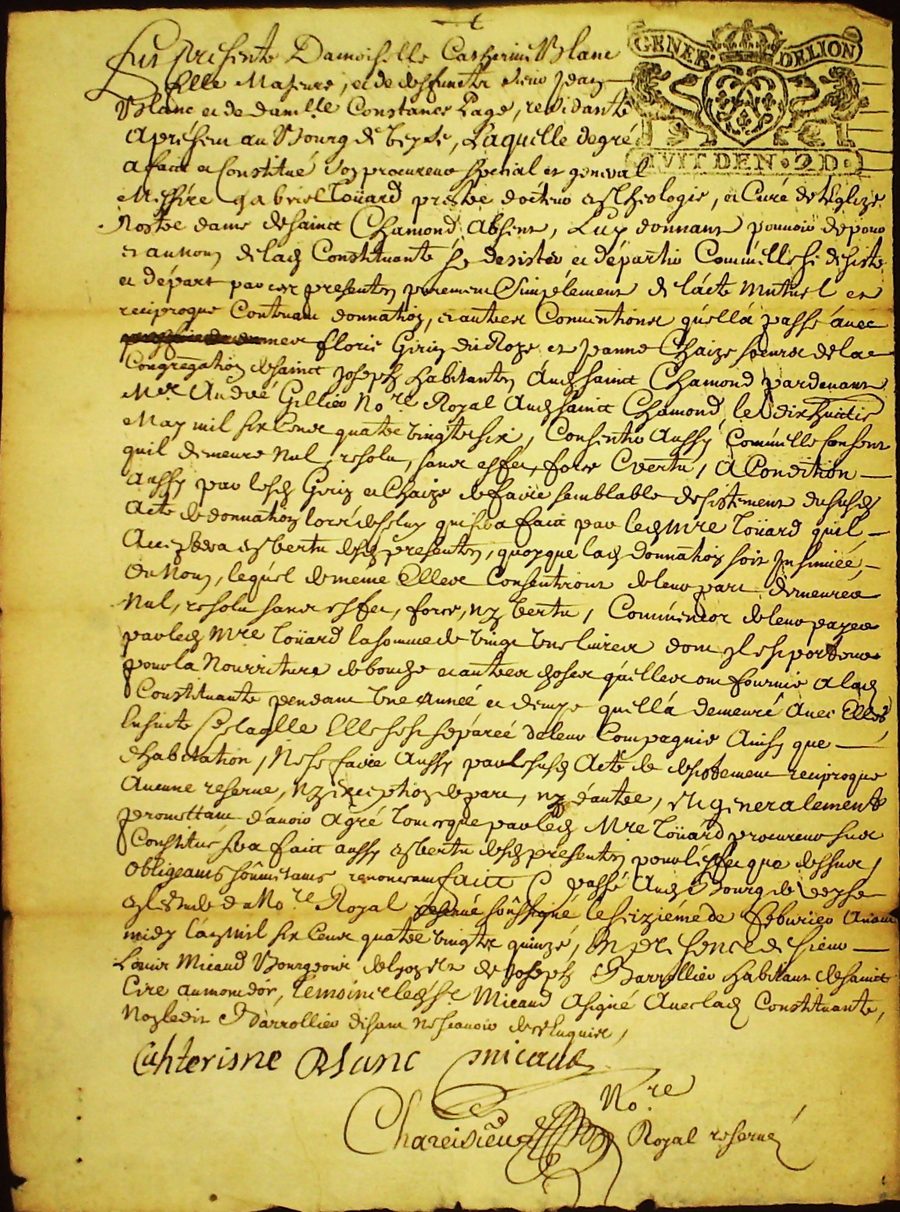 GENER. DELION
HVIT DEN. 2 D.
Fut presente Damoiselle Catherine Blanc
fille Majeure, et de deffuncts sieur Jean
Blanc et de damlle Constance Page, residante
apresent au Bourg de Veyse, Laquelle de gré
a faict et Constitué son procureur special et general
Messire gabriel Toüard prestre docteur en Theologie, et Curé de l'Eglize
Nostre dame de sainct Chamond, absent, Luy donnant pouvoir de pour
et au nom de lad. Constituante se desister et départir Comm'elle se desiste
et départ par ces presentes purement Simplement de l'acte mutuel et
reciproque Contenant donnation, et autres Conventions qu'ella passé avec
florie Gerin du Roze et Jeanne Chaize soeurs de la
Congregation de sainct Joseph habitantes Aud. sainct Chamond pardevant
Mre André Gillier Nore Royal Aud. sainct Chamond, le dix huictie
May mil six Cens quatre vingts six, Consentir Aussy Comm'elle Consent
quil demeure Nul, resolu, sans effet, force et vertu, à Condition
Aussy par lesd. Gerin et Chaize de faire semblable desistement dususd.
Acte de donnation lors desluy qui sera faict par led. Mre Toüard quil
Acceptera en vertu desd. presentes, quoyque lad. donnation soit Insinuée
Ou Non, lequel de meme Elles Consentiront de leur part demeurer
Nul, resolu sans effet, force, ny vertu, Comm'encor de leur payer
par led. Mre Toüard la somme de vingt une livres dont
pour la Nourriture de bouche et autres choses qu'elles ont fournie a lad.
Constituante pendant Une Année et demye quella demeuré Avec Elles
Ensuite de laqlle Elle sest separée de leur Compagnie Ainsy que
d'habitation, Ne se faire Aussy par le susd. Acte de desistement reciproque
Aucune reserve, ny exception de part, ny d'autre, Et generalement
promettant d'avoir Agré tout ce que par led. Mre Toüard procureur sus
Constitué sera faict aussy en vertu desd. presentes pour l'effet que dessus,
Obligeants soûmettants renonceant faict & passé Aud. Bourg de Veyse
en l'Estude du Nore Royal reservé soûssigné le seizième de febvrier Avant
midy l'an mil six Cens quatre vingts quinze, En presence de sieur
Louis Micaud Bourgeois de Lyon et de Joseph Barrollier habitant de sainct
Cire au mondor, temoins led. sr Micaud a signé Avec lad. Constituante,
Non ledit Barrollier disant ne scavoir de ce Enquis,
Cathterisne Blanc micaud
Nore
Chareisieu Royal reservé